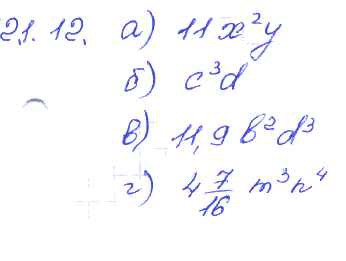 21.12. а) 11x²y
б) c³d
в) 11,9 b²d³
г) 4 7/16 m³n⁴